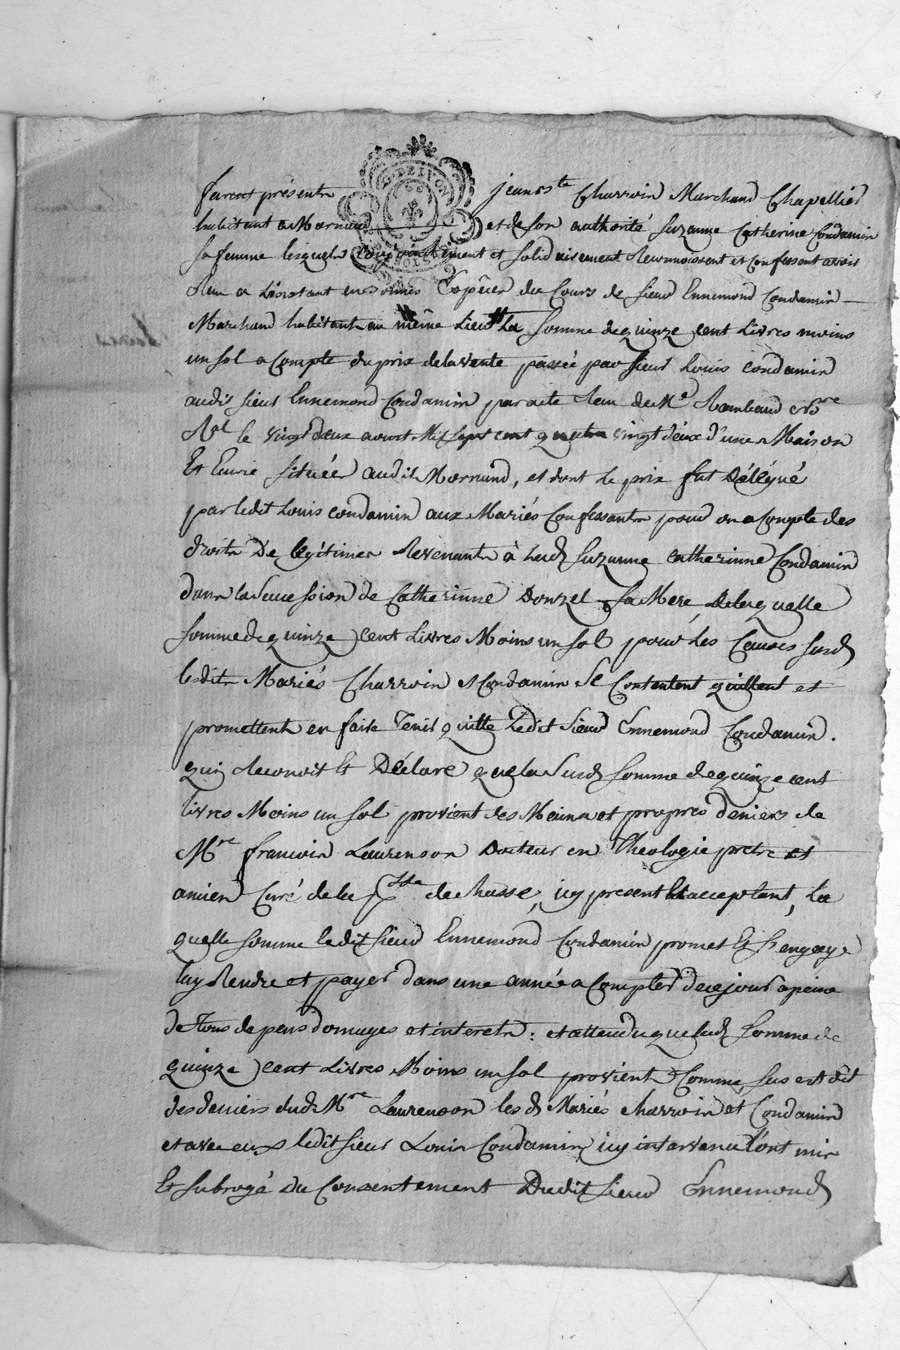 furent présents jean bte Charvoin Marchand Chapellier
habitant a Mornand et de Son authorité Suzanne Catherine Condamin
Sa femme lesquels conjointement et Solidairement Reconnoissent et Confessent avoir
Reçu a L'instant en bonnes Espêces du Cours de Sieur Ennemond Condamin
Marchand habitant au même Lieu La Somme de quinze cent Livres moins
un sol a Compte du prix de la vente passée par Sieur Louis Condamin
audit Sieur Ennemond Condamin par acte Reçu de Me Rambaud
le vingt deux aoust Mil Sept cent quatre vingt deux d'une Maison
Et Ecurie Située audit Mornand, et dont le prix fut Délégué
par ledit Louis Condamin aux Mariés Confessants pour ou a Compte des
droits De légitimes Revenants à Lad Suzanne Catherinne Condamin
dans la Succession de Catherinne Donzel Sa Mere, De laquelle
Somme de quinze Cent Livres Moins un Sol pour Les Causes Susd
lesdits Mariés Charvoin et Condamin Se Contentent quittent et
promettent en faire Tenir quitte Ledit Sieur Ennemond Condamin.
quy Reconoit Et Déclare que la Susd Somme de quinze cent
livres Moins un Sol provient des Mains et propres deniers de
Mre francois Laurenson Docteur en Theologie pretre et
ancien Curé de la de Chasse, icy present Et acceptant, La
quelle Somme ledit Sieur Ennemond Condamin promet Et S'engage
luy Rendre et payer dans une année a Compter de ce jour a peine
de Tous depens domages et interets: et attendu que lad Somme de
quinze Cent Livres Moins un Sol provient Comme Sus est dit
des deniers dud Mre Laurenson les d Mariés Charvoin et Condamin
et avec eux ledit Sieur Louis Condamin icy intervenu l'ont mis
Et Subrogé Du Consentement Dudit Sieur Ennemond